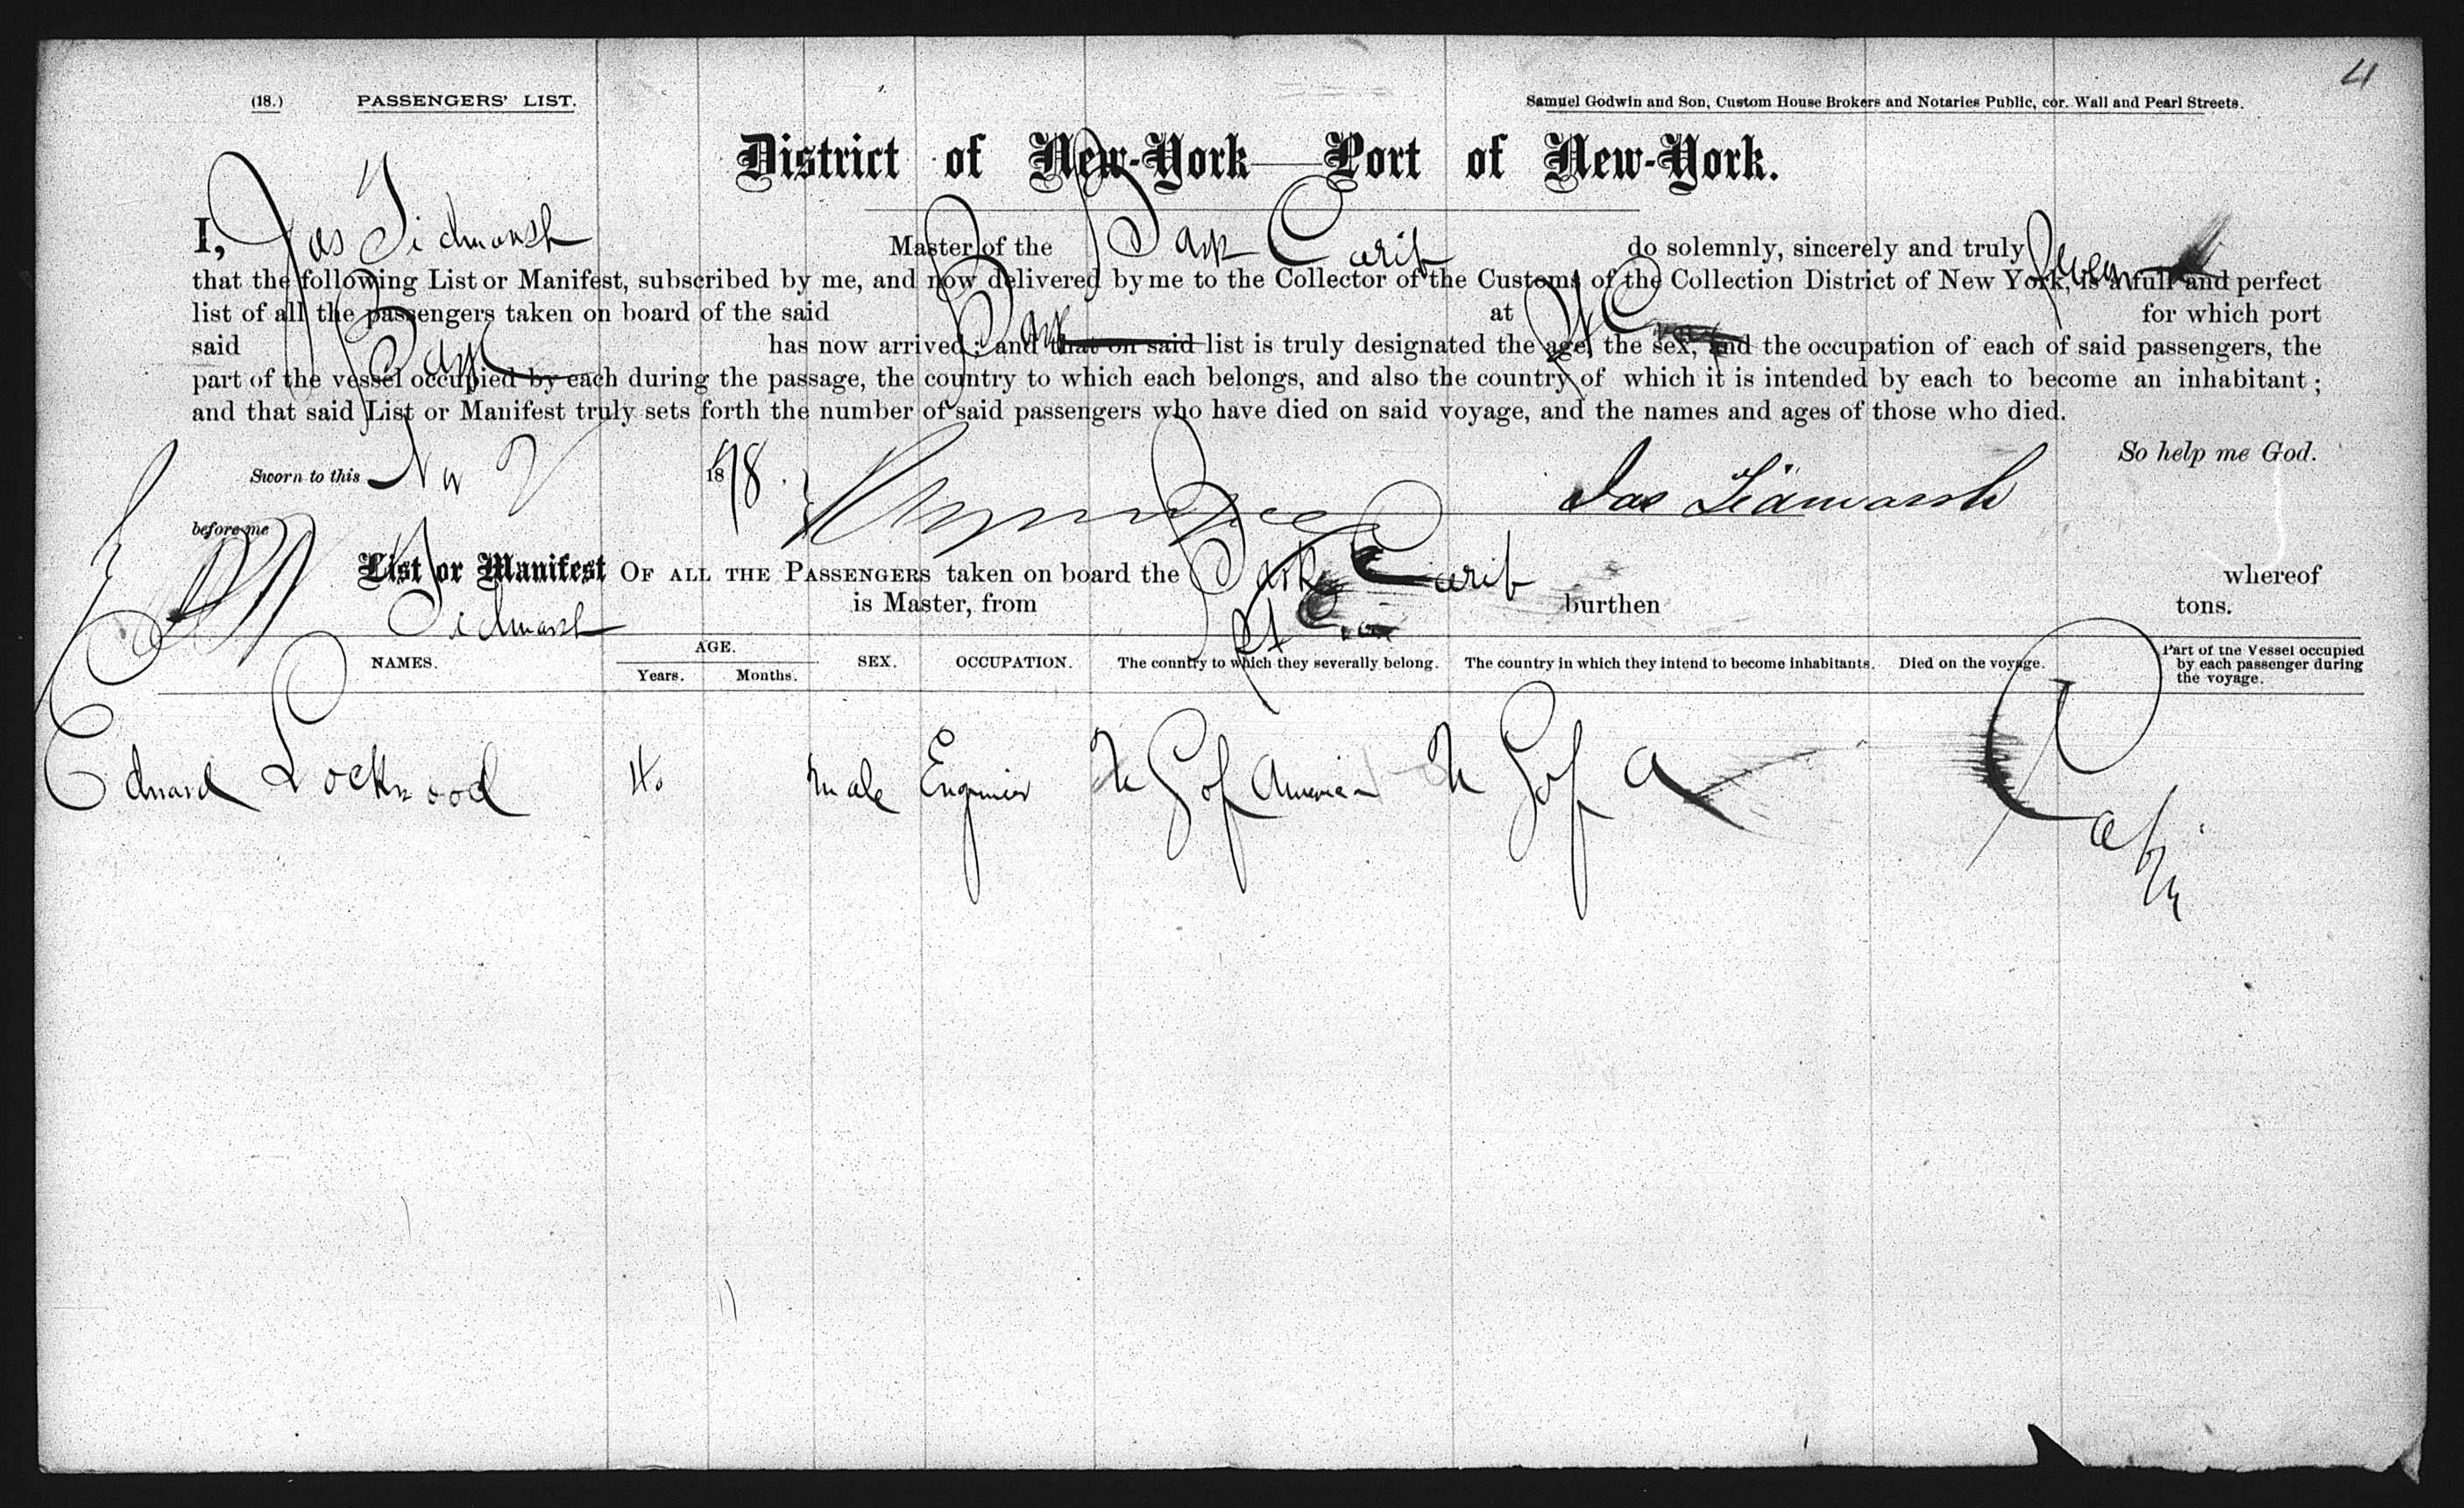 4
(18.) PASSENGERS' LIST. Samuel Godwin and Son, Custom House Brokers and Notaries Public, cor. Wall and Pearl Streets.
District of New-York—Port of New-York.
I, Jas Tidmarsh Master of the Bark Carib do solemnly, sincerely and truly swear
that the following List or Manifest, subscribed by me, and now delivered by me to the Collector of the Customs of the Collection District of New York, is a full and perfect
list of all the passengers taken on board of the said Bark at St Croix for which port
said Bark has now arrived; and that on said list is truly designated the age, the sex, and the occupation of each of said passengers, the
part of the vessel occupied by each during the passage, the country to which each belongs, and also the country of which it is intended by each to become an inhabitant;
and that said List or Manifest truly sets forth the number of said passengers who have died on said voyage, and the names and ages of those who died.
So help me God.
Sworn to this Nov 2 1878. Jas Tidmarsh
before me
List or Manifest OF ALL THE PASSENGERS taken on board the Bark Carib whereof
Tidmarsh is Master, from St Croix burthen tons.
NAMES. AGE. Years. Months. SEX. OCCUPATION. The country to which they severally belong. The country in which they intend to become inhabitants. Died on the voyage. Part of the Vessel occupied by each passenger during the voyage.
Edward Lockwood 40 Male Engineer U S of America U S of A Cabin